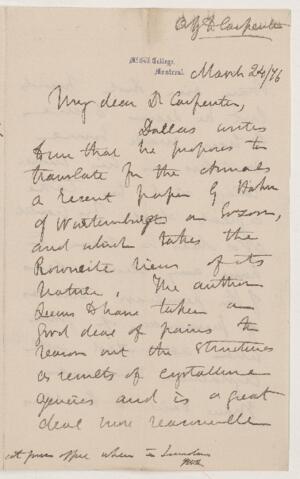 Carpenter
McGill College,
Montreal.
March 24/76
My dear Dr Carpenter,
Dallas writes
me that he proposes to
translate for the Annals
a recent paper by Hahn
of Wurtemberg on Eozoon,
and which takes the
Rowneite view of its
nature. The author
seems to have taken a
good deal of pains to
reason out the structures
as results of crystalline
agencies and is a great
deal more reasonable
when in London